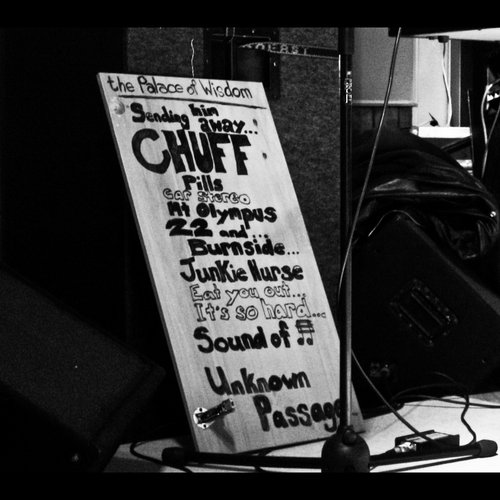 the Palace of Wisdom
Sending him
away...
CHUFF
Pills
Car Stereo
Mt Olympus
22 and ...
Burnside...
Junkie Nurse
Eat you out...
It's so hard...
Sound of
Unknown
Passage